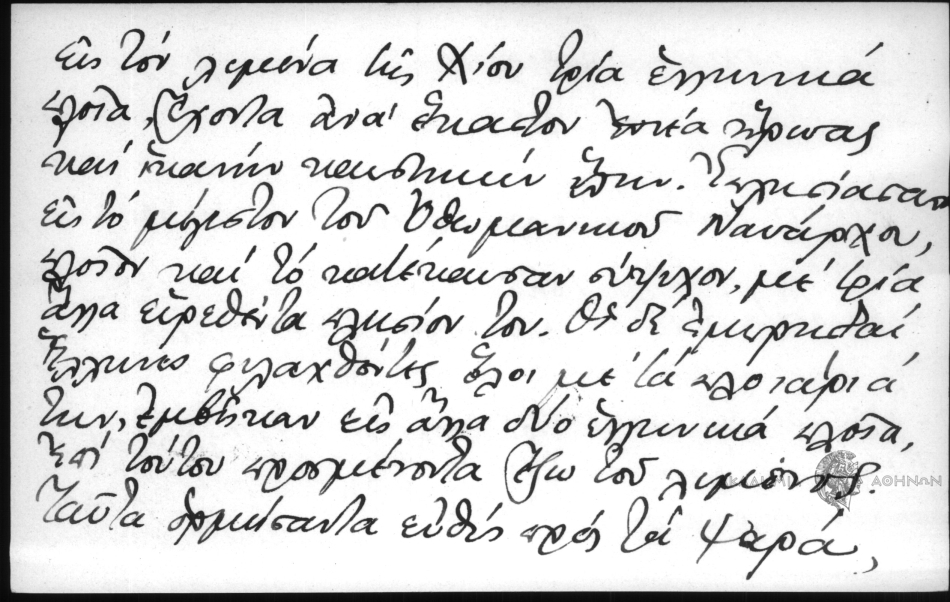 εἰς τόν λιμένα τῆς Χίου τρία ἑλληνικά
πλοῖα, ἔχοντα ἀνά ἕκαστον ἐννέα ἥρωας
καί ἱκανήν καυστικήν ὕλην. Ἐπλησίασαν
εἰς τό μέγιστον τοῦ Ὀθωμανικοῦ Ναυάρχου,
πλοῖον καί τό κατέκαυσαν σύμψυχον, μέ τρία
ἄλλα εὑρεθέντα πλησίον του. Οἱ δέ ἐμπρησταί
Ἕλληνες φυλαχθέντες ὅλοι μέ τά πλοιάριά
των, ἐμβῆκαν εἰς ἄλλα δύο ἑλληνικά πλοῖα,
ἐπί τούτου προσμένοντα ἔξω τοῦ λιμένος.
Ταῦτα ὁρμήσαντα εὐθύς πρός τά Ψαρά,
ΑΘΗΝΩΝ